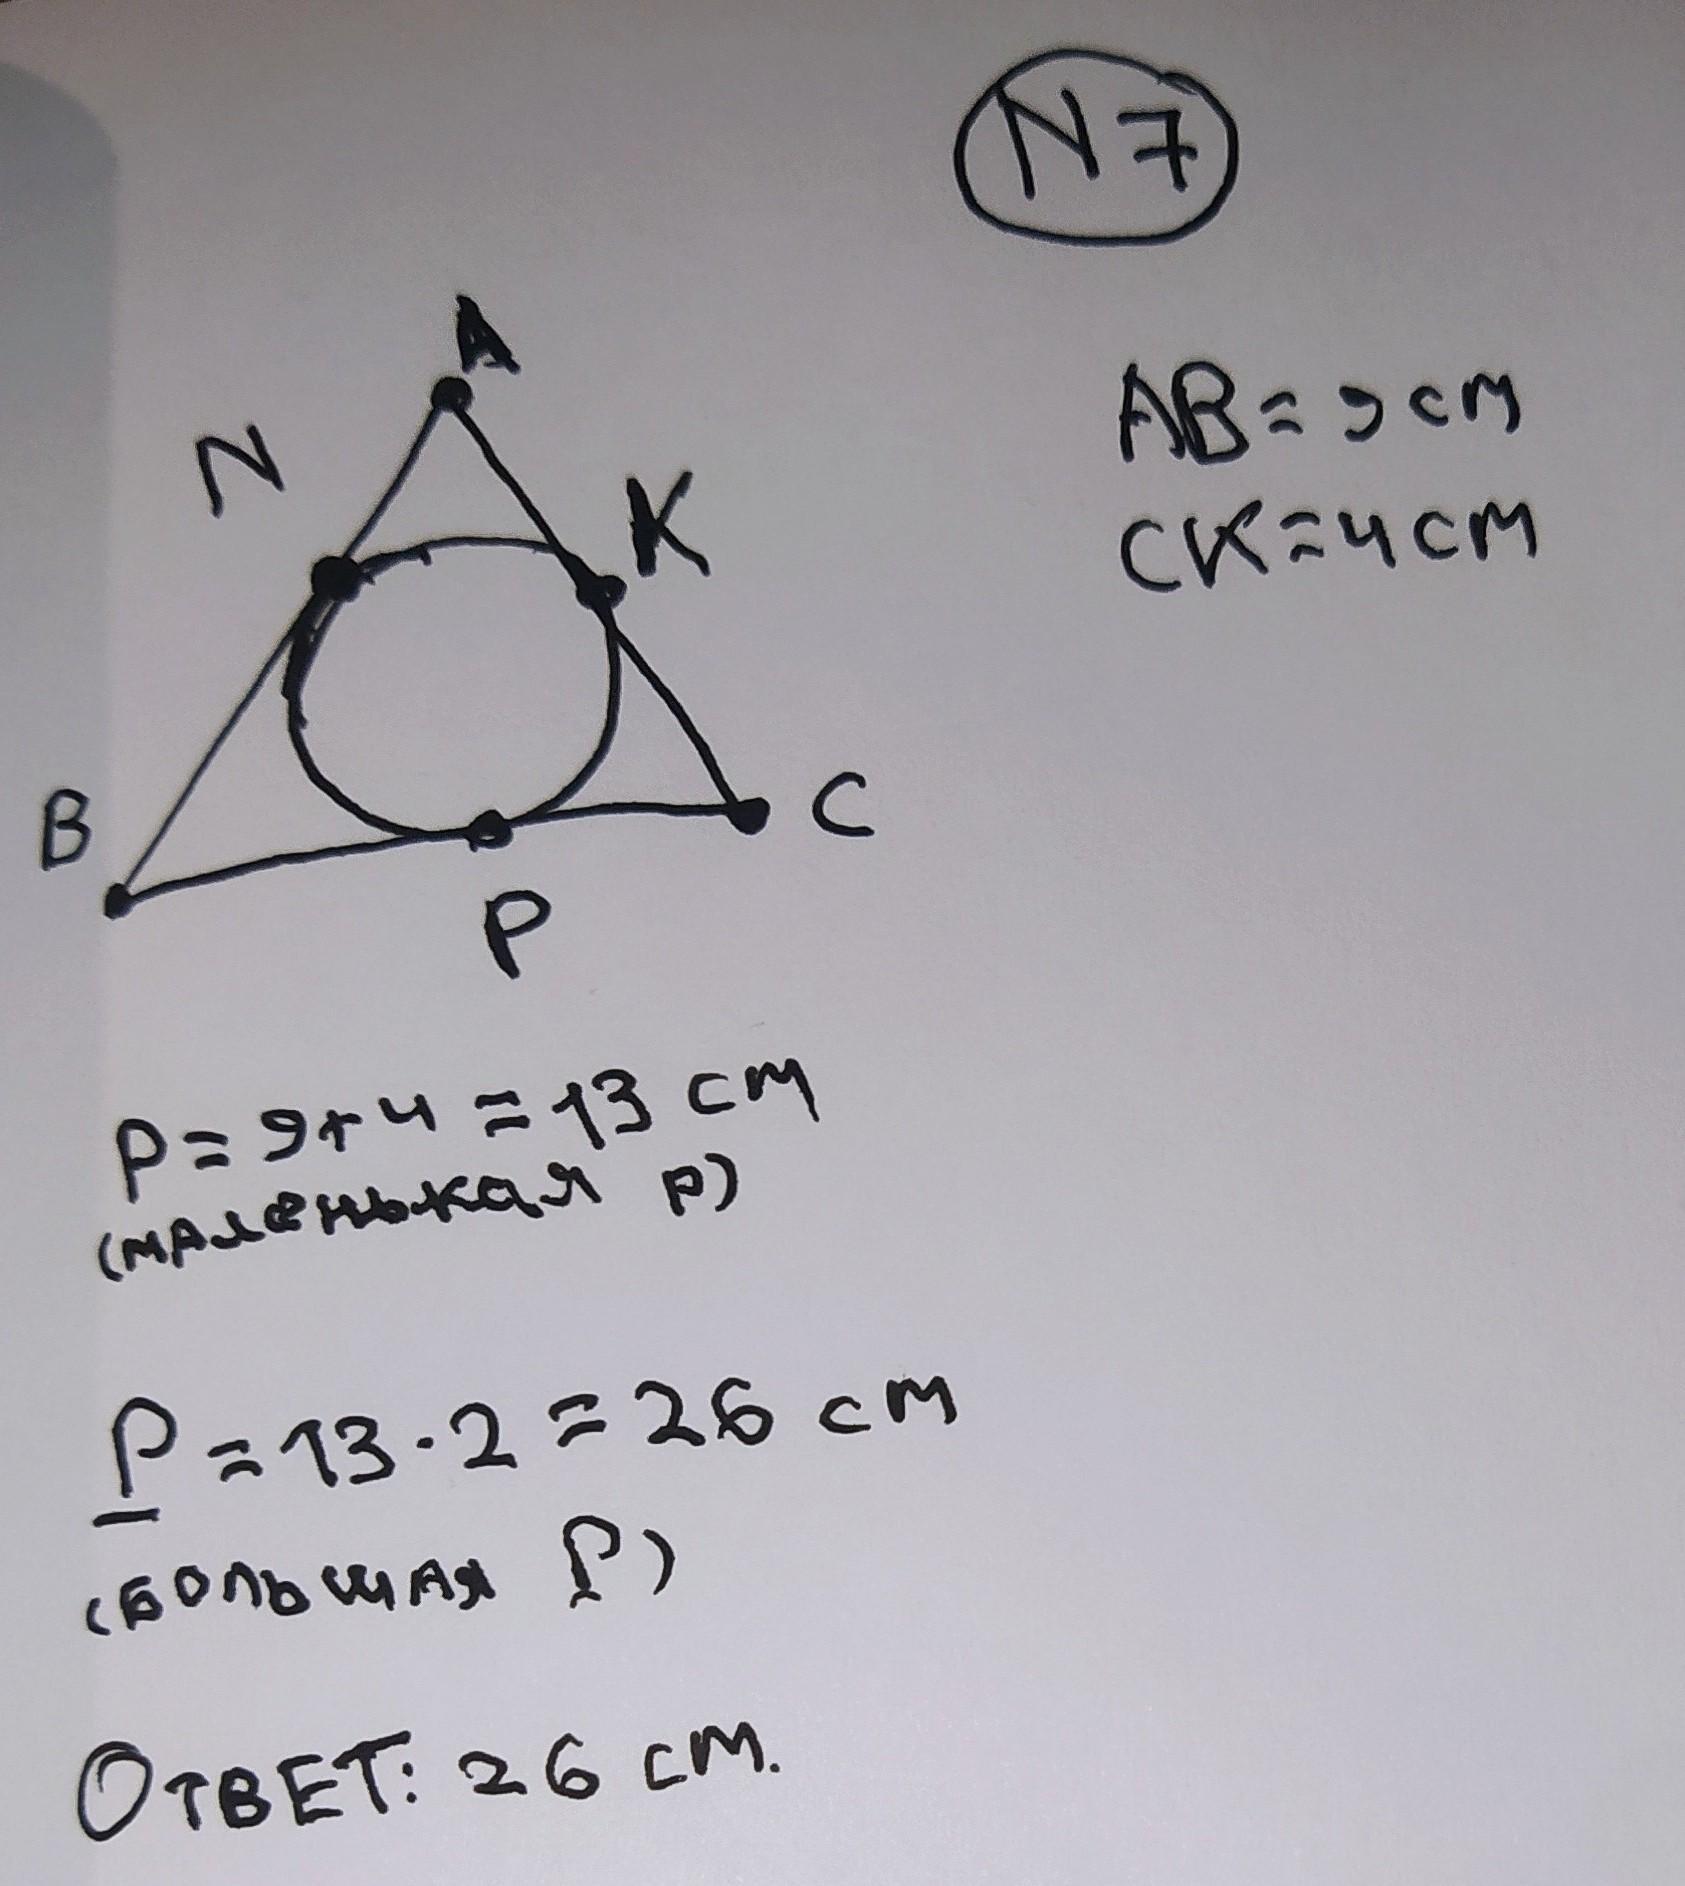 N7
A
N
K
AB = 9 см
CK = 4 см
B
C
P
p = 9 + 4 = 13 см
(маленькая p)
P = 13 · 2 = 26 см
(большая P)
ОТВЕТ: 26 см.